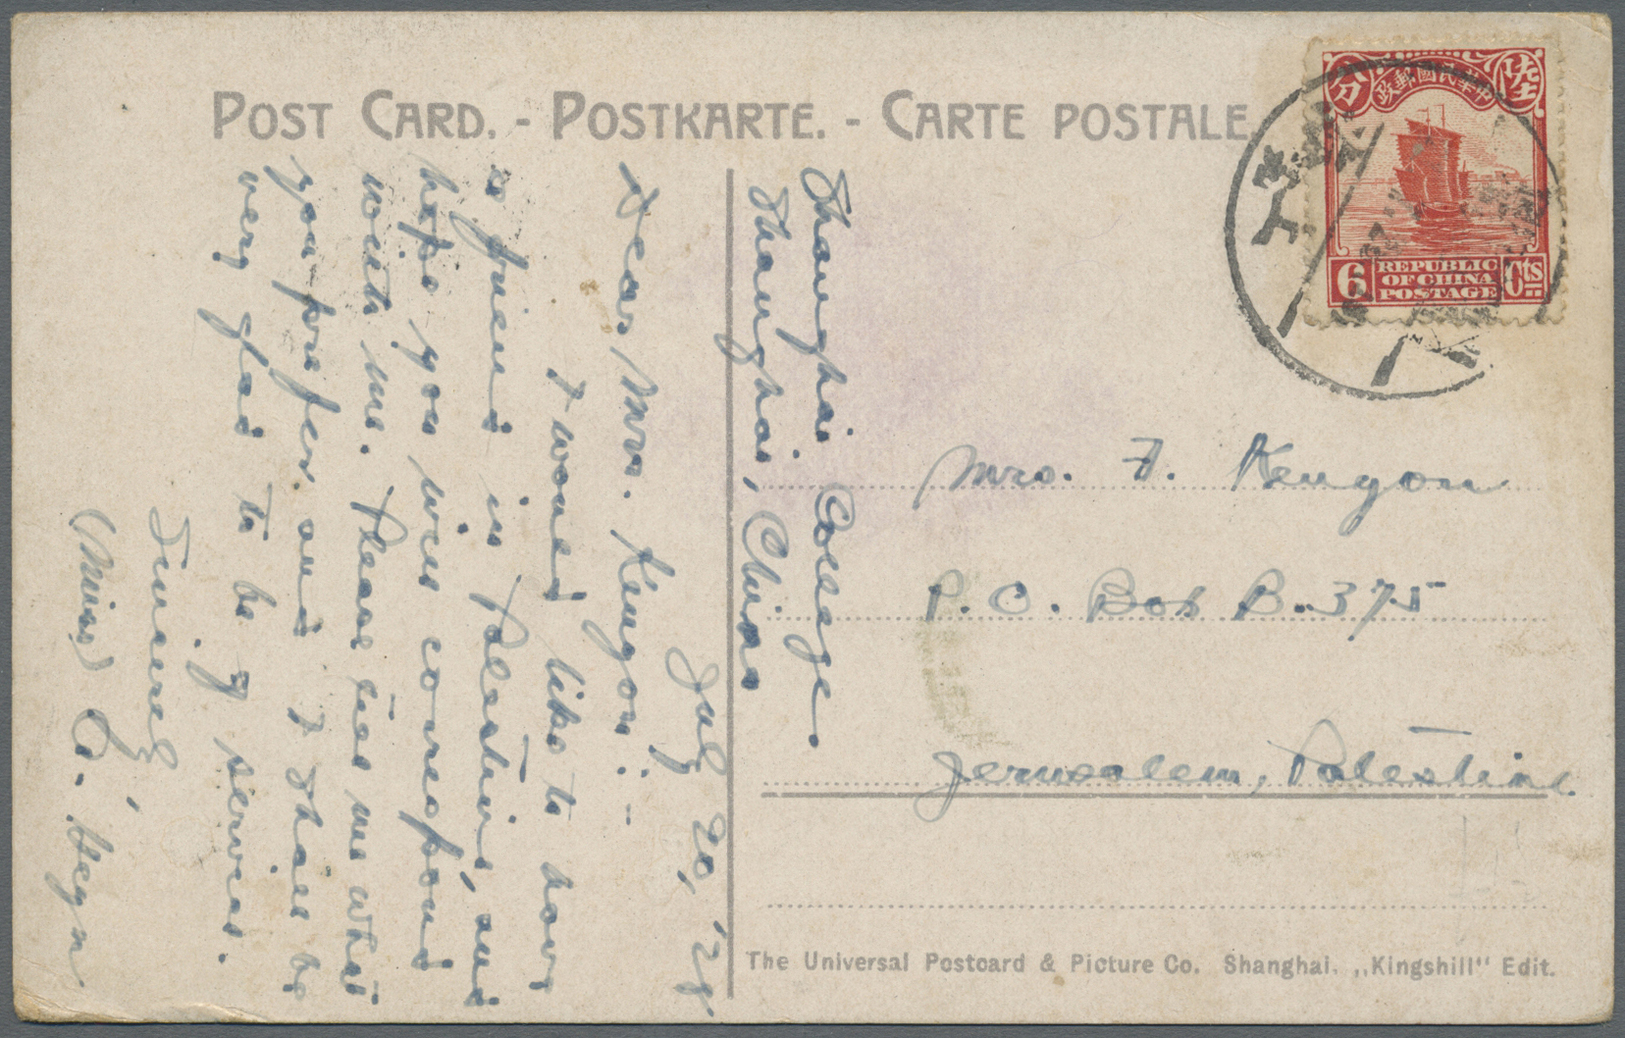 POST CARD. - POSTKARTE. - CARTE POSTALE.
分 中華民國郵政 陸
6 REPUBLIC OF CHINA POSTAGE Cts
上海
Shanghai College.
Shanghai, China
July 20, '28
Dear Mrs. Kenyon: -
I would like to have
a friend in Palestine, and
hope you will correspond
with me. Please tell me what
you prefer and I shall be
very glad to be of service.
Sincerely,
(Miss)
Mrs. F. Kenyon
P. O. Box B. 375
Jerusalem, Palestine.
The Universal Postcard & Picture Co. Shanghai. „Kingshill“ Edit.